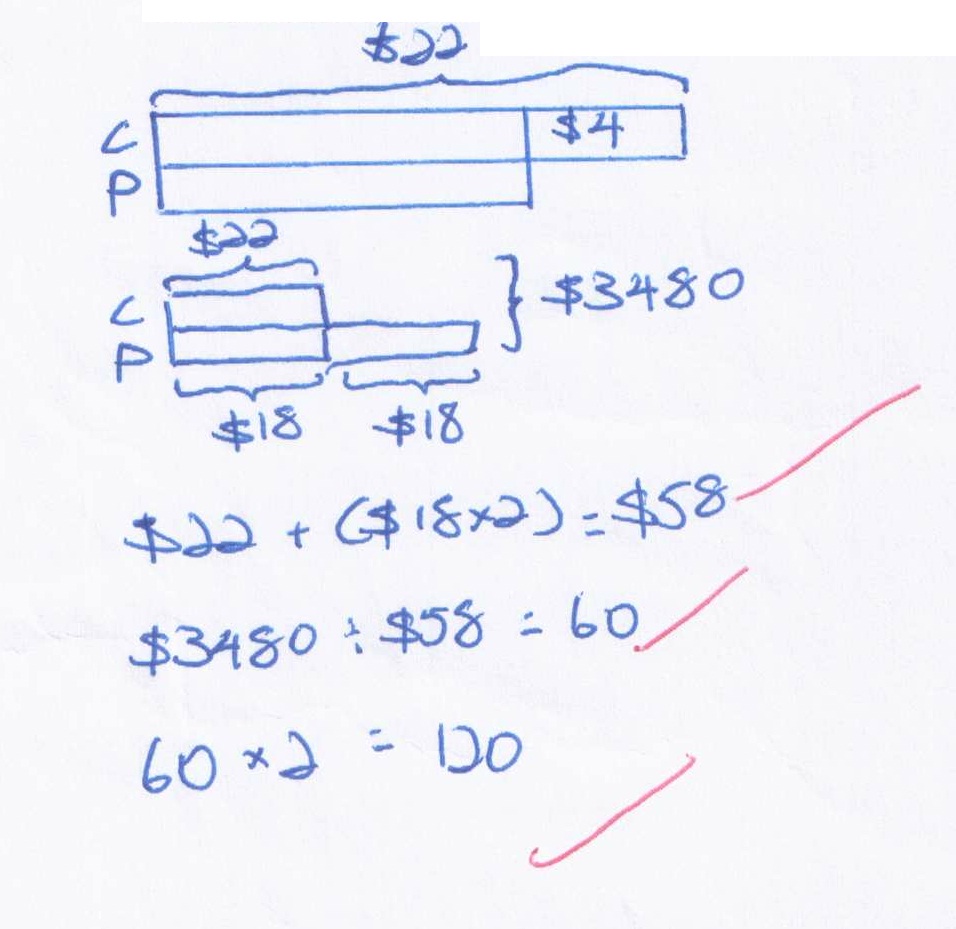 $22
C $4
P
$22
C
P
} $3480
$18 $18
$22 + ($18×2) = $58
$3480 ÷ $58 = 60
60 × 2 = 120